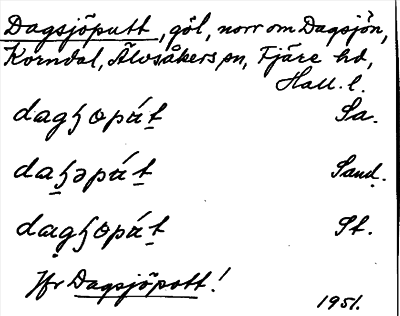 Dagsjöputt, göl, norr om Dagsjön,
Korndal, Älvsåkers sn, Fjäre hd,
Hall. l.
dagʒopát Sa.
daʒəpát Sand.
dagʒopát St.
Jfr Dagsjöpott!
1951.